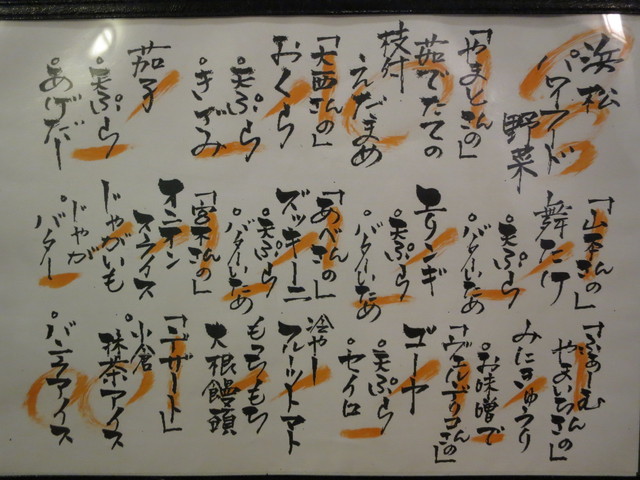 浜松
パワーフード
野菜
「やまとさんの」
茹でたての
枝付
えだまめ
「大西さんの」
おくら
天ぷら
きざみ
茄子
天ぷら
あげだし
「山本さんの」
舞たけ
天ぷら
バターいため
エリンギ
天ぷら
バターいため
「あべさんの」
ズッキーニ
天ぷら
バターいため
「宮本さんの」
オニオン
スライス
じゃがいも
じゃが
バター
「ふぁーむ
やまいちさんの」
みにきゅうり
お味噌で
ゴーヤ
天ぷら
セイロ
冷やし
フルーツトマト
もっちもち
大根饅頭
「デザート」
小倉
抹茶アイス
バニラアイス